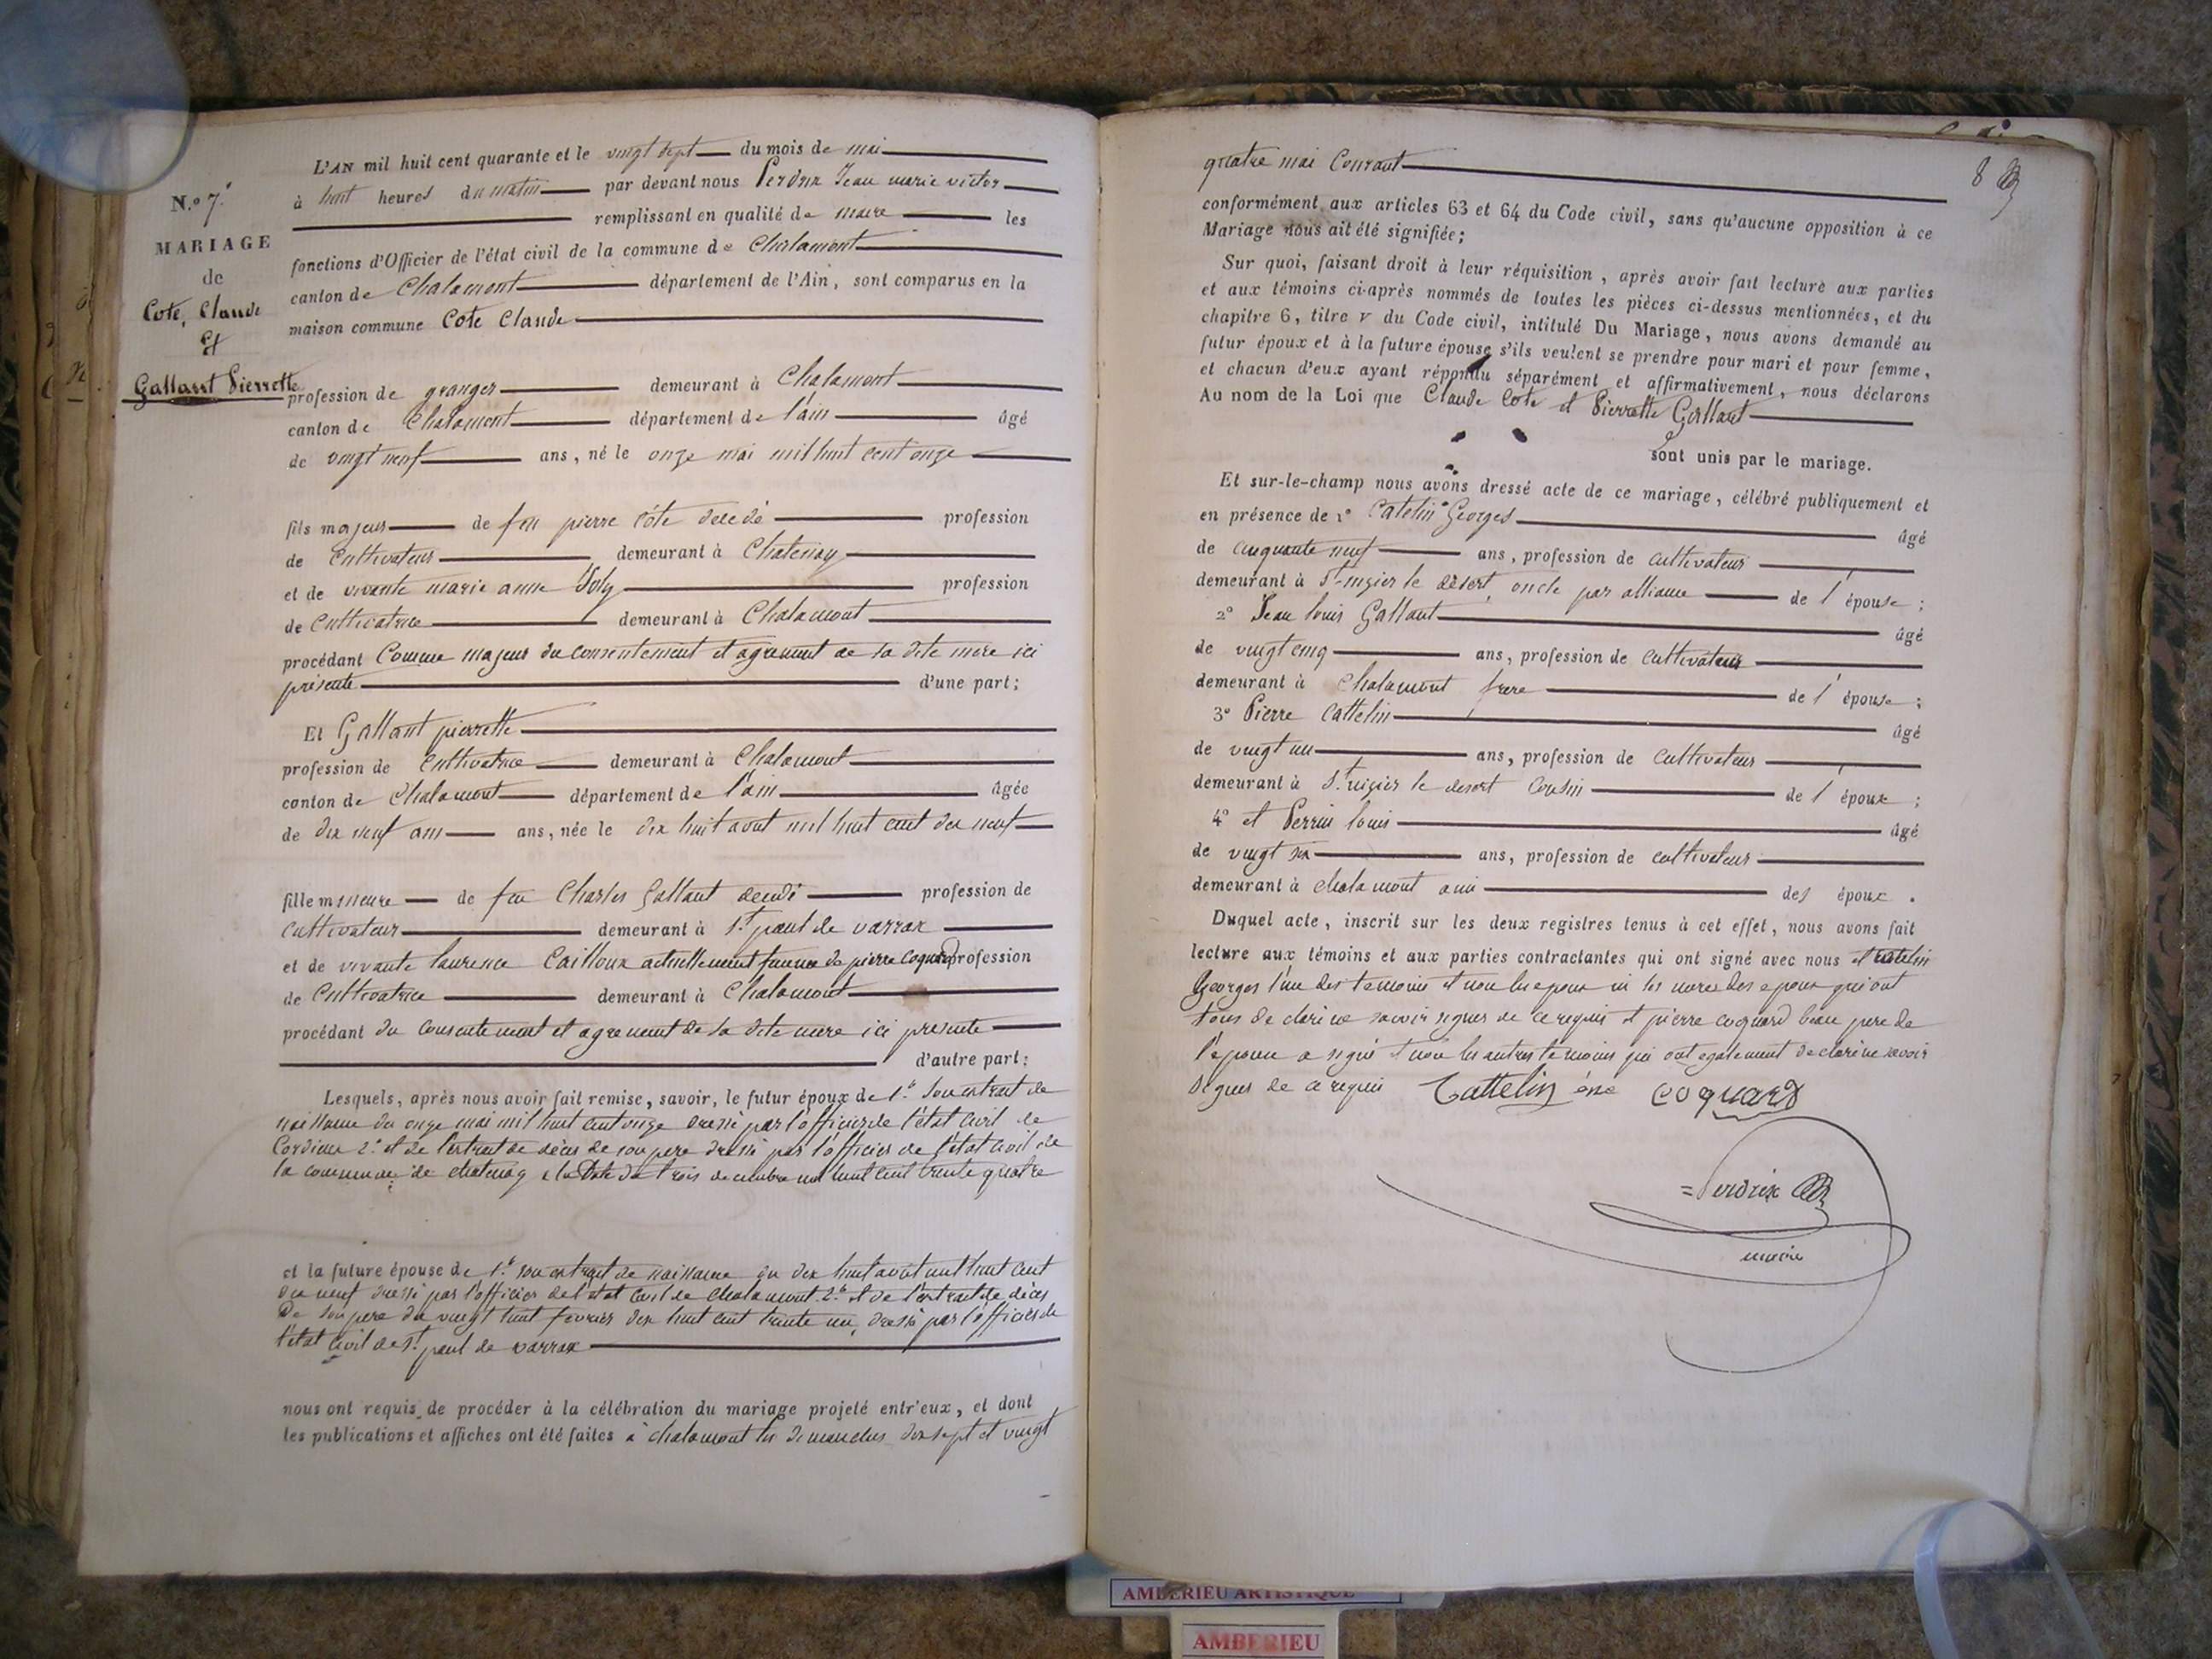 N.o 7.
MARIAGE
de
Cote, Claude
Et
Gallant Pierrette
L'AN mil huit cent quarante et le vingt sept du mois de mai
à huit heures du matin par devant nous Perdrix Jean marie victor
remplissant en qualité de maire les
fonctions d'Officier de l'état civil de la commune de Chalamont
canton de Chalamont département de l'Ain, sont comparus en la
maison commune Cote Claude
profession de granger demeurant à Chalamont
canton de Chalamont département de l'ain âgé
de vingt neuf ans, né le onze mai mil huit cent onze
fils majeur de feu pierre Côte décédé profession
de Cultivateur demeurant à Chatenay
et de vivante marie anne Joly profession
de Cultivatrice demeurant à Chalamont
procédant Comme majeur du consentement et agrement de sa dite mere ici
présente d'une part;
Et Gallant pierrette
profession de Cultivatrice demeurant à Chalamont
canton de Chalamont département de l'ain âgée
de dix neuf ans ans, née le dix huit aout mil huit cent dix neuf
fille mineure de feu Charles Gallant décédé profession de
Cultivateur demeurant à St. paul de varrax
et de vivante laurence Cailloux actuellement femme de pierre Coquard profession
de Cultivatrice demeurant à Chalamont
procédant du consentement et agrement de sa dite mere ici presente
d'autre part:
Lesquels, après nous avoir fait remise, savoir, le futur époux de 1.° Son extrait de
naissance du onze mai mil huit cent onze dressé par l'officier de l'état civil de
Cordieux 2.° et de l'extrait de décès de son pere dressé par l'officier de l'état civil de
la commune de chatenay à la Date du trois decembre mil huit cent trente quatre
et la future épouse de 1.° son extrait de naissance du dix huit avout mil huit cent
dix neuf dressé par l'officier de l'état civil de Chalamont. 2.° et de l'extrait de décès
De son pere du vingt huit fevrier dix huit cent trente un, dressé par l'officier de
l'état civil de St. paul de varrax
nous ont requis de procéder à la célébration du mariage projeté entr'eux, et dont
les publications et affiches ont été faites à chalamont les dimanches dix sept et vingt
8
quatre mai Courant
conformément aux articles 63 et 64 du Code civil, sans qu'aucune opposition à ce
Mariage nous ait été signifiée;
Sur quoi, faisant droit à leur réquisition, après avoir fait lecture aux parties
et aux témoins ci-après nommés de toutes les pièces ci-dessus mentionnées, et du
chapitre 6, titre v du Code civil, intitulé Du Mariage, nous avons demandé au
futur époux et à la future épouse s'ils veulent se prendre pour mari et pour femme,
et chacun d'eux ayant répondu séparément et affirmativement, nous déclarons
Au nom de la Loi que Claude Cote et Pierrette Gallant
sont unis par le mariage.
Et sur-le-champ nous avons dressé acte de ce mariage, célébré publiquement et
en présence de 1° Catelin Georges âgé
de cinquante neuf ans, profession de cultivateur
demeurant à St-nizier le désert, oncle par alliance de l'épouse;
2° Jean louis Gallant âgé
de vingt cinq ans, profession de cultivateur
demeurant à Chalamont frere de l'épouse;
3° Pierre Cattelin âgé
de vingt un ans, profession de Cultivateur
demeurant à St. nizier le desert Cousin de l'époux;
4° et Perrin louis âgé
de vingt six ans, profession de cultivateur
demeurant à chalamont ami des époux.
Duquel acte, inscrit sur les deux registres tenus à cet effet, nous avons fait
lecture aux témoins et aux parties contractantes qui ont signé avec nous et Catelin
Georges l'un des temoins et non les epoux ni les meres des epoux qui ont
tous declaré ne savoir signer de ce requis et pierre coquard beau pere de
l'epouse a signé et non les autres temoins qui ont egalement declaré ne savoir
signer de ce requis Cattelin coquard
Perdrix
maire
AMBERIEU ARTISTIQUE
AMBERIEU